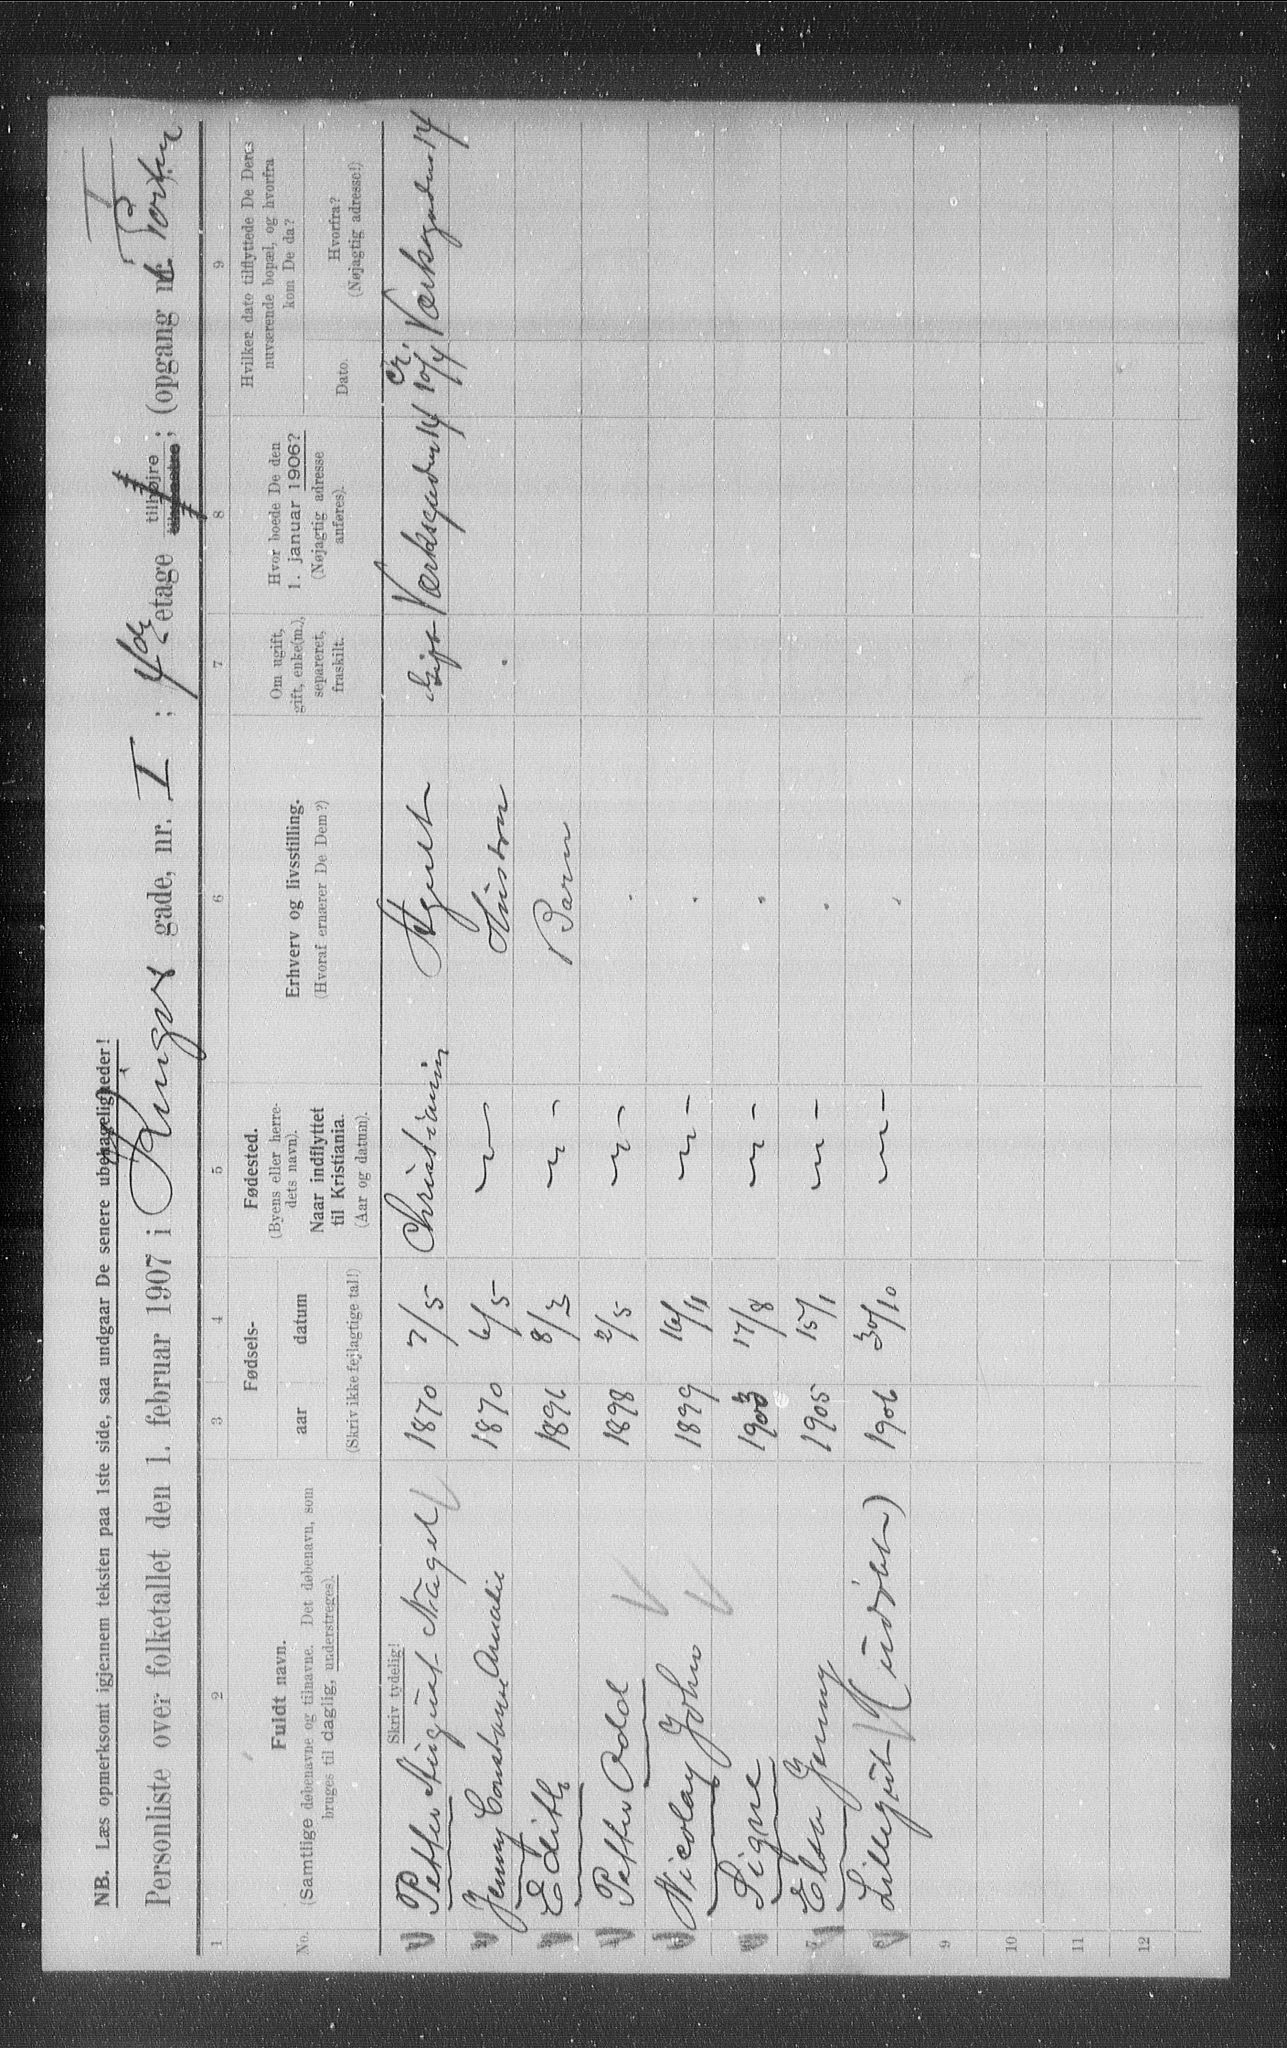 NB. Læs opmerksomt igjennem teksten paa 1ste side, saa undgaar De senere ubehageligheder!
Personliste over folketallet den 1. februar 1907 i Kinger gade, nr. I ; 4de etage tilhøjre ; (opgang nr. Porten
1 2 3 4 5 6 7 8 9
No. Fuldt navn. (Samtlige døbenavne og tilnavne. Det døbenavn, som bruges til daglig, understreges).
Fødsels-
aar datum
(Skriv ikke fejlagtige tal!)
Fødested. (Byens eller herredets navn). Naar indflyttet til Kristiania. (Aar og datum).
Erhverv og livsstilling. (Hvoraf ernærer De Dem?)
Om ugift, gift, enke(m.), separeret, fraskilt.
Hvor boede De den 1. januar 1906? (Nøjagtig adresse anføres).
Hvilken dato tilflyttede De Deres nuværende bopæl, og hvorfra kom De da?
Dato. Hvorfra? (Nøjagtig adresse!)
Skriv tydelig!
Petter August Nagel 1870 7/5 Christiania Agent Gift Værksgaden 14 10/4 Værksgaden 14
Jenny Constanse Amalie 1870 6/5 — Hustru "
3 Edith 1896 8/3 — " — Barn
4 Petter Odd 1898 2/5 — " — "
Nicolay John 1899 16/11 — " — "
Signe 1903 17/8 — " — "
7 Elsa Jenny 1905 15/1 — " — "
8 Lillegut (udøbt) 1906 30/10 — " — "
9
10
11
12